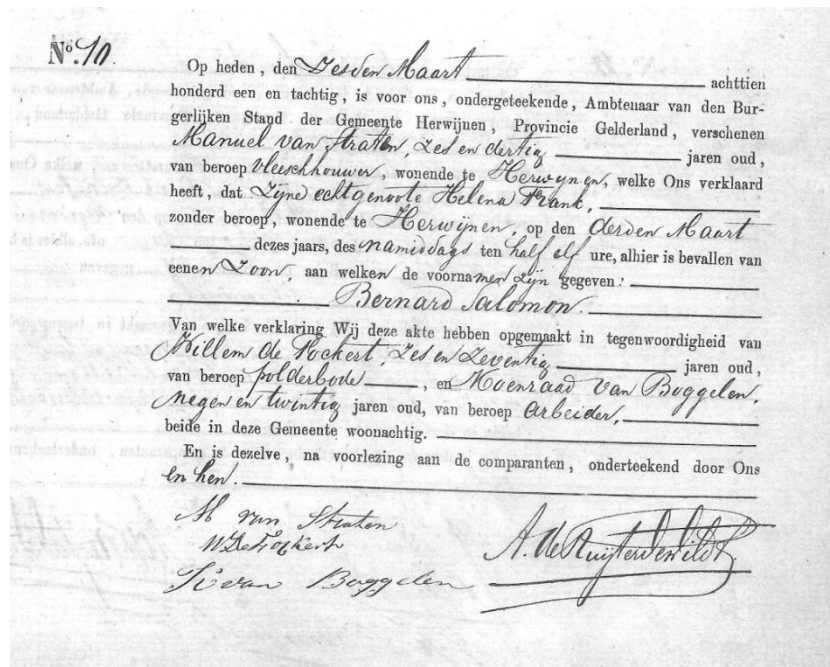 No. 10.
Op heden, den Zesden Maart achttien
honderd een en tachtig, is voor ons, ondergeteekende, Ambtenaar van den Bur-
gerlijken Stand der Gemeente Herwijnen, Provincie Gelderland, verschenen
Manuel van Straten, Zes en dertig jaren oud,
van beroep vleeschhouwer, wonende te Herwynen, welke Ons verklaard
heeft, dat Zijne echtgenoote Helena Frank,
zonder beroep, wonende te Herwijnen, op den derden Maart
dezes jaars, des namiddags ten half elf ure, alhier is bevallen van
eenen Zoon, aan welken de voornamen zijn gegeven:
Bernard Salomon.
Van welke verklaring Wij deze akte hebben opgemaakt in tegenwoordigheid van
Willem de Fockert, Zes en Zeventig jaren oud,
van beroep polderbode, en Koenraad van Buggelen,
negen en twintig jaren oud, van beroep Arbeider,
beide in deze Gemeente woonachtig.
En is dezelve, na voorlezing aan de comparanten, onderteekend door Ons
en hen.
M van Straten
W De Fockert
K van Buggelen
A. de Ruijter de Wildt